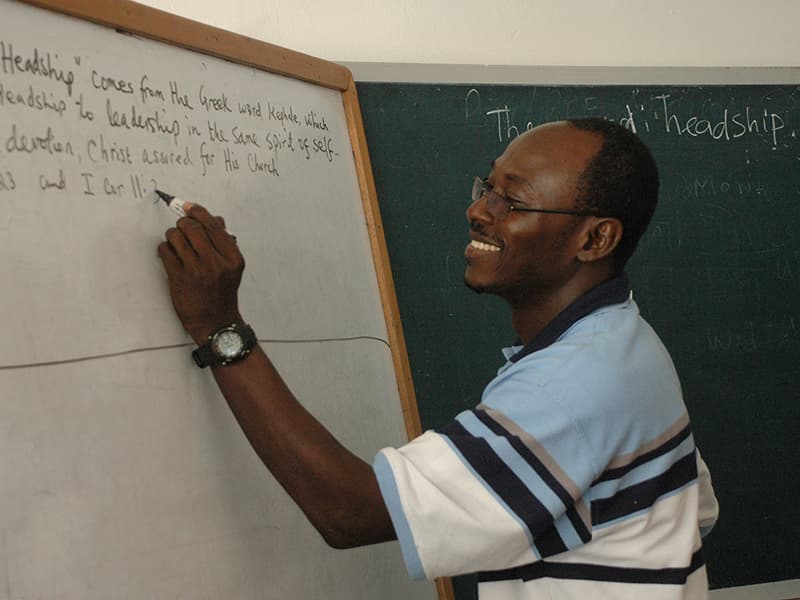 Headship" comes from the Greek word Kephale, which
Headship to leadership in the same spirit of self-
devotion, Christ assured for His Church
23 and I cor 11:3
The headship.